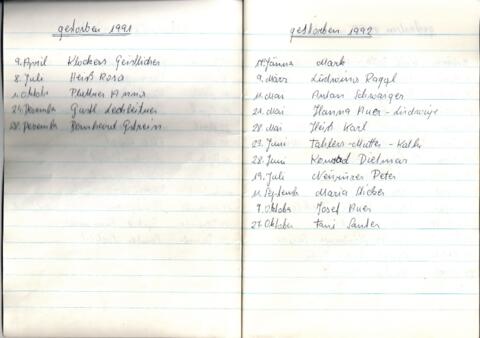 gestorben 1991
9. April Klockers Geistlicher
8. Juli Heiß Rosa
1. Oktober Plattner Anna
24. Dezember Gustl Lechleitner
28. Dezember Bernhard Gstrein
gestorben 1992
Jänner Mark
9. März Ludwina Raggl
11. Mai Anton Schwarger
21. Mai Hanna Auer - Ludwige
28. Mai Heiß Karl
23. Juni Mutter - Kathr
28. Juni Konrad Dietmar
19. Juli Neururer Peter
11. September Maria
7. Oktober Josef Auer
27. Oktober Santer